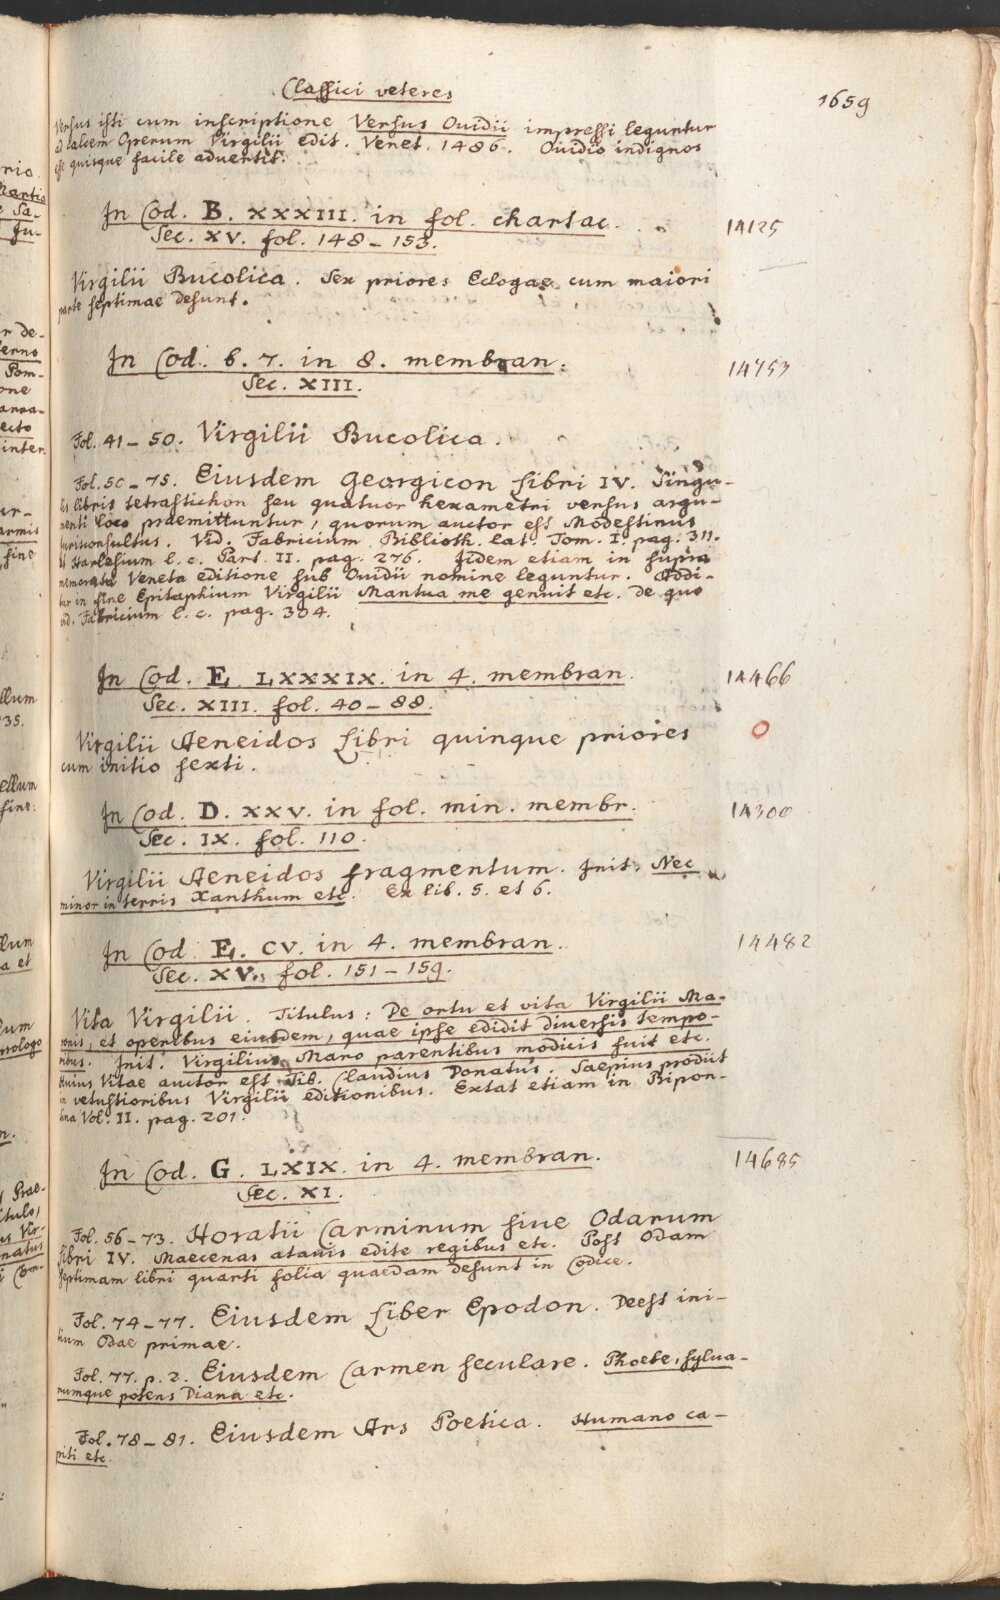 Classici veteres
1659
Versus isti cum inscriptione Versus Ouidii impressi leguntur
ad calcem Operum Virgilii edit. Venet. 1486. Ouidio indignos
esse quisque facile advertit.
In Cod. B. XXXIII. in fol. chartac.
14125
Sec. XV. fol. 148-153.
Virgilii Bucolica. Sex priores Eclogae cum maiori
parte septimae desunt.
In Cod. b. 7. in 8. membran.
14753
Sec. XIII.
Fol. 41-50. Virgilii Bucolica.
Fol. 50-75. Eiusdem Georgicon Libri IV. Singu-
lis libris tetrastichon seu quatuor hexametri versus argu-
menti loco praemittuntur, quorum auctor est Modestinus
iurisconsultus. Vid. Fabricium Biblioth. lat. Tom. I. pag. 311.
et Harlesium l. c. Part. II. pag. 276. Iidem etiam in supra
memorata Veneta editione sub Ouidii nomine leguntur. Addi-
tur in fine Epitaphium Virgilii Mantua me genuit etc. De quo
vid. Fabricium l. c. pag. 304.
In Cod. E. LXXXIX. in 4. membran.
14466
Sec. XIII. fol. 40-88.
Virgilii Aeneidos Libri quinque priores
cum initio sexti.
In Cod. D. XXV. in fol. min. membr.
14300
Sec. IX. fol. 110.
Virgilii Aeneidos fragmentum. Init. Nec
minor in terris Xanthum etc. Ex lib. 5. et 6.
In Cod. E. CV. in 4. membran.
14482
Sec. XV. fol. 151-159.
Vita Virgilii. Titulus: De ortu et vita Virgilii Ma-
ronis, et operibus eiusdem, quae ipse edidit diversis tempo-
ribus. Init. Virgilius Maro parentibus modicis fuit etc.
Huius Vitae auctor est Tib. Claudius Donatus. Saepius prodiit
in vetustioribus Virgilii editionibus. Extat etiam in Bipon-
tina Vol. II. pag. 201.
In Cod. G. LXIX. in 4. membran.
14685
Sec. XI.
Fol. 56-73. Horatii Carminum sive Odarum
Libri IV. Maecenas atauis edite regibus etc. Post Odam
septimam libri quarti folia quaedam desunt in Codice.
Fol. 74-77. Eiusdem Liber Epodon. Deest ini-
tium Odae primae.
Fol. 77. p. 2. Eiusdem Carmen seculare. Phoebe, sylua-
rumque potens Diana etc.
Fol. 78-81. Eiusdem Ars Poetica. Humano ca-
piti etc.